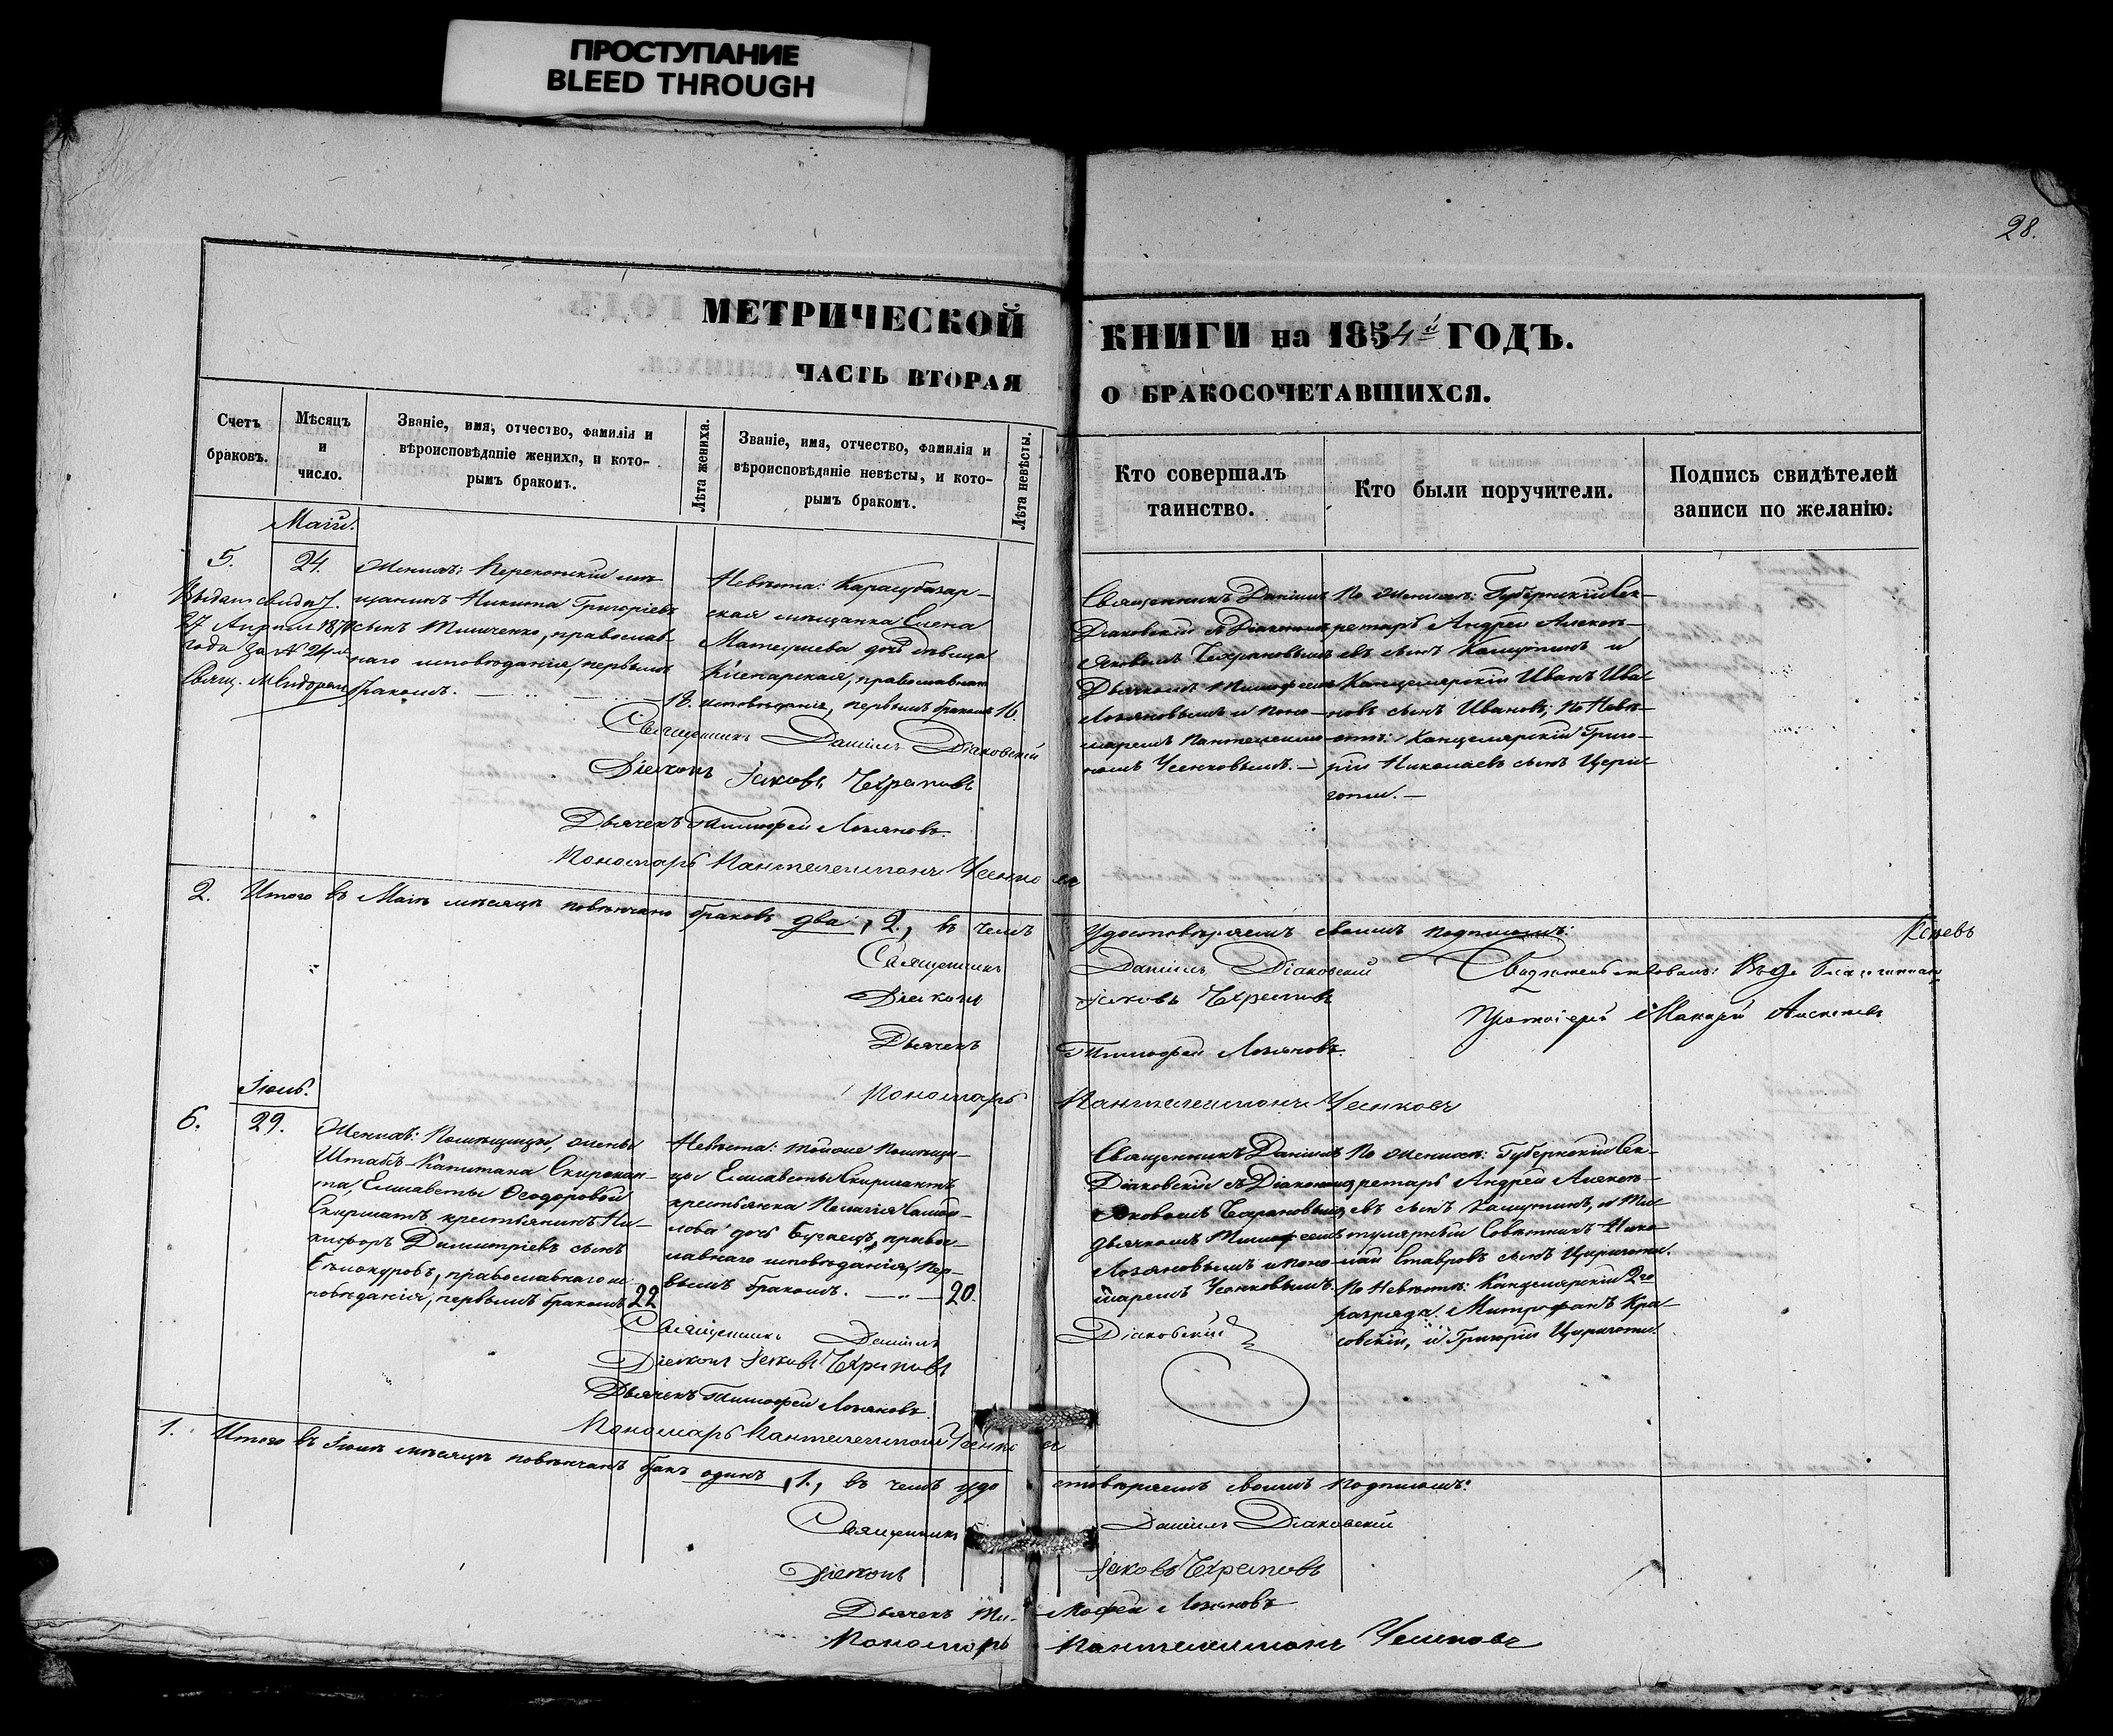 ПРОСТУПАНИЕ
BLEED THROUGH
28.
МЕТРИЧЕСКОЙ
КНИГИ на 1854й ГОДЪ.
ЧАСТЬ ВТОРАЯ
О БРАКОСОЧЕТАВШИХСЯ.
Счетъ
браковъ.
Мѣсяцъ
и
число.
Званіе, имя, отчество, фамилія и
вѣроисповѣданіе жениха, и кото-
рымъ бракомъ.
Лѣта жениха.
Званіе, имя, отчество, фамилія и
вѣроисповѣданіе невѣсты, и кото-
рымъ бракомъ.
Лѣта невѣсты.
Кто совершалъ
таинство.
Кто были поручители.
Подпись свидѣтелей
записи по желанію.
Маій.
5.
24.
27 Апрѣля
года за №24
Женихъ: Перекопскій мѣ
щанинъ Никита Григорьевъ
сынъ Тимченко, православ-
наго исповѣданія, первымъ
бракомъ.
18.
Невѣста: Карасубазар-
ская мѣщанка Елена
Матѳиева дочь дѣвица
православнаго
исповѣданія, первымъ бракомъ
16.
Священникъ Даніилъ
Діаковскій съ Діакономъ
Яковомъ Чехрановымъ
Дьячкомъ Тимофеемъ
Лозяновымъ и поно-
маремъ Пантелеимо-
номъ Усенковымъ.
По женихѣ: Губернскій Сек-
ретарь Андрей Алексѣ-
евъ сынъ Кашутинъ и
Канцелярскій Иванъ Ива-
новъ сынъ Ивановъ; по Невѣ-
стѣ: Канцелярскій Григо-
рій Николаевъ сынъ Цери-
готи.
Священникъ Даніилъ Діаковскій
Діаконъ Іаковъ Чехрановъ
Дьячекъ Тимофей Лозяновъ.
Пономарь Пантелеимонъ Усенковъ
2. Итого въ Маіѣ мѣсяцѣ повѣнчано браковъ два, 2., въ чемъ
удостовѣряемъ своимъ подписомъ:
Священникъ Даніилъ Діаковскій
Діаконъ Іаковъ Чехрановъ
Протоіерей
Дьячекъ Тимофей Лозяновъ.
Пономарь Пантелеимонъ Усенковъ
Іюнь.
6.
29.
Женихъ: Помѣщицы, жены
Штабсъ-Капитана
Елисаветы Ѳеодоровой
Скирмантъ крестьянинъ Ни-
кифоръ Димитріевъ сынъ
Бѣлокуровъ, православнаго ис
повѣданія, первымъ бракомъ
22
Невѣста: тойже помѣщи-
цы Елисаветы Скирмантъ
крестьянка Пелагія
дочь правос-
лавнаго исповѣданія, пер-
вымъ бракомъ.
20.
Священникъ Даніилъ
Діаковскій съ Діакономъ
Яковомъ Чехрановымъ,
дьячкомъ Тимофеемъ
Лозяновымъ и поно-
маремъ Усенковымъ.
По женихѣ: Губернскій Сек-
ретарь Андрей Алексѣ-
евъ сынъ Кашутинъ, и Ти-
тулярный Совѣтникъ Нико-
лай Ставровъ сынъ Цириготи.
По Невѣстѣ: Канцелярскій 2го
разряда Митрофанъ Кра-
совскій, и Григорій Цириготи.
Священникъ Даніилъ Діаковскій
Діаконъ Іаковъ Чехрановъ
Дьячекъ Тимофей Лозяновъ.
Пономарь Пантелеимонъ Усенковъ
1. Итого въ Іюнѣ мѣсяцѣ повѣнчанъ бракъ одинъ, 1., въ чемъ удо
стовѣряемъ своимъ подписомъ:
Священникъ Даніилъ Діаковскій
Діаконъ Іаковъ Чехрановъ
Дьячекъ Тимофей Лозяновъ
Пономарь Пантелеимонъ Усенковъ